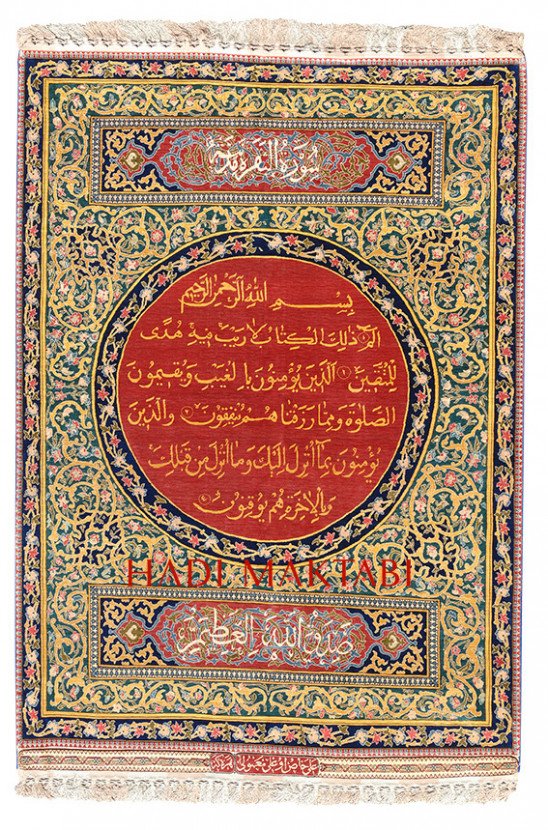 سورة البقرة
بسم الله الرحمن الرحيم
الم ذلك الكتاب لا ريب فيه هدى
للمتقين ١ الذين يؤمنون بالغيب ويقيمون
الصلوة ومما رزقناهم ينفقون ٢ والذين
يؤمنون بما أنزل اليك وما انزل من قبلك
وبالاخرة هم يوقنون
HADI MAKTABI
صدق الله العظيم